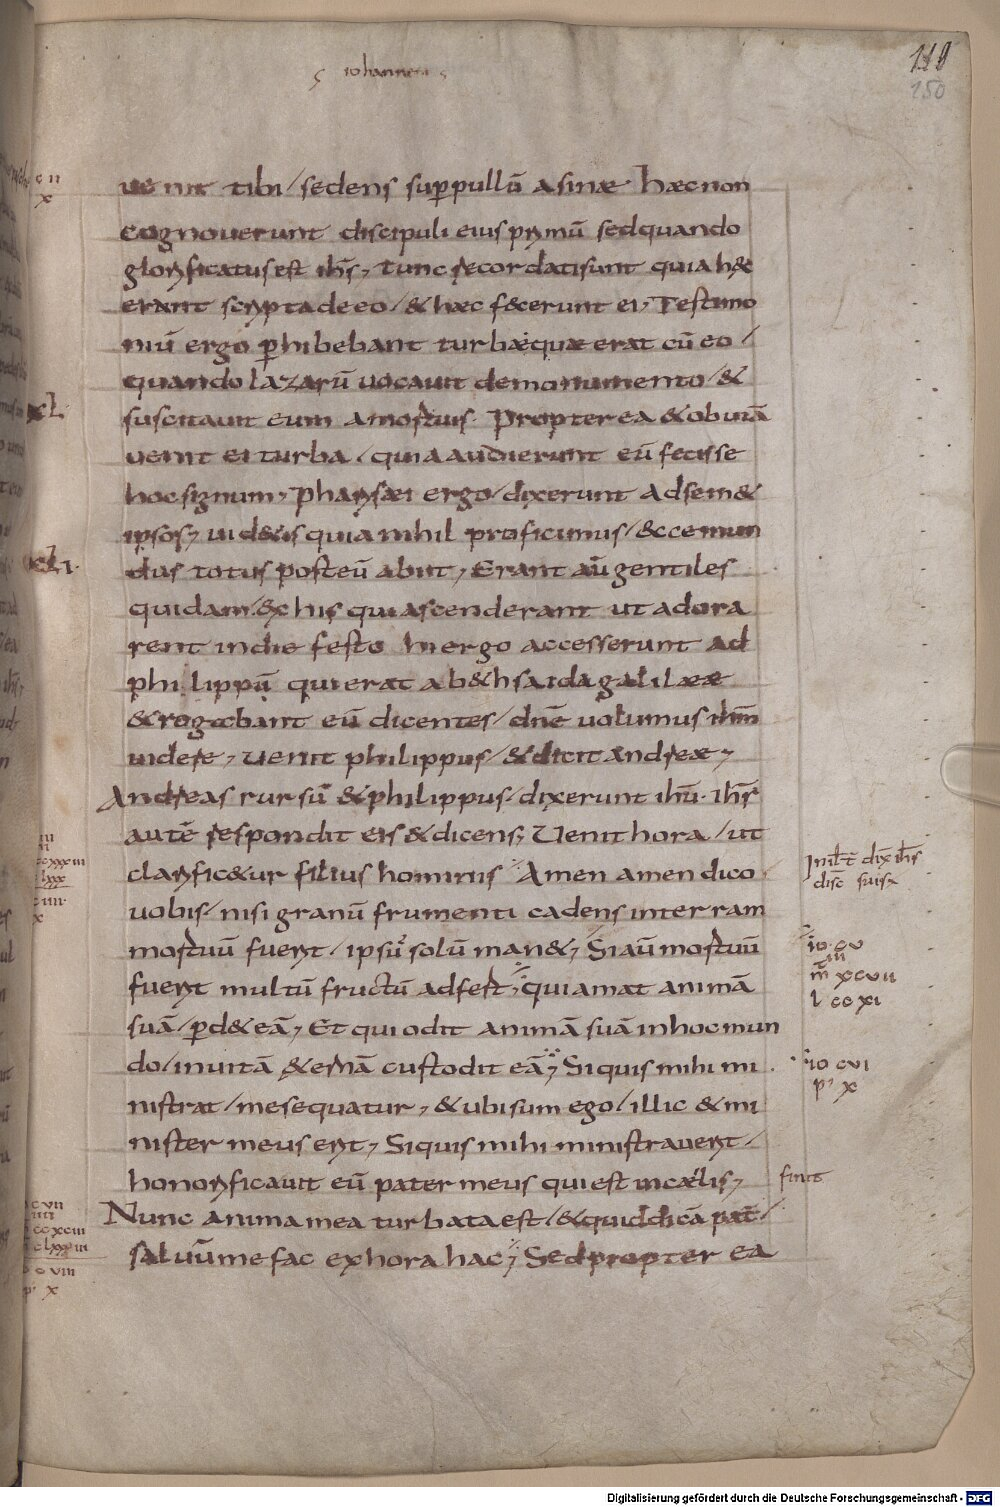 iohannem
110
150
uenit tibi / sedens sup pullū asinæ. Hæc non
cognouerunt discipuli eius primū sed quando
glorificatus est ihs, tunc recordati sunt quia h&c
erant scripta de eo / & hæc fecerunt ei, Testimo
niū ergo phibebant turbæ quæ erat cū eo /
quando lazarū uocauit de monumento / &
suscitauit eum a mortuis. Propterea & obuiā
uenit ei turba, quia audierunt eū fecisse
hoc signum, pharisæi ergo / dixerunt ad sem&
ipsos, uid&is quia nihil proficimus / & ecce mun
dus totus post eū abiit, Erant aū gentiles
quidam / &x his qui ascenderant ut adora
rent in die festo hi ergo accesserunt ad
philippū qui erat a b&hsaida galilææ
& rogabant eū dicentes / dnē uolumus ihm
uidere, uenit philippus / & dicit andreæ,
Andreas rursū & philippus / dixerunt ihū. ihs
autē respondit eis & dicens, Uenit hora / ut
clarific&ur filius hominis Amen amen dico
uobis / nisi granū frumenti cadens in terram
mortuū fuerit / ipsū solū man&, Si aū mortuū
fuerit multū fructū adfert, qui amat animā
suā / pd& eā, Et qui odit animā suā in hoc mun
do / in uitā &ernā custodit eā, Si quis mihi mi
nistrat / me sequatur, & ubi sum ego / illic & mi
nister meus erit, Si quis mihi ministrauerit /
honorificauit eū pater meus qui est in cælis,
Nunc anima mea turbata est / & quid dicā pat /
saluū me fac ex hora hac, Sed propter ea
In il t dix ihs
disc suis
io cv
m xcvii
l cc xi
io cvi
p x
finit
Digitalisierung gefördert durch die Deutsche Forschungsgemeinschaft - DFG